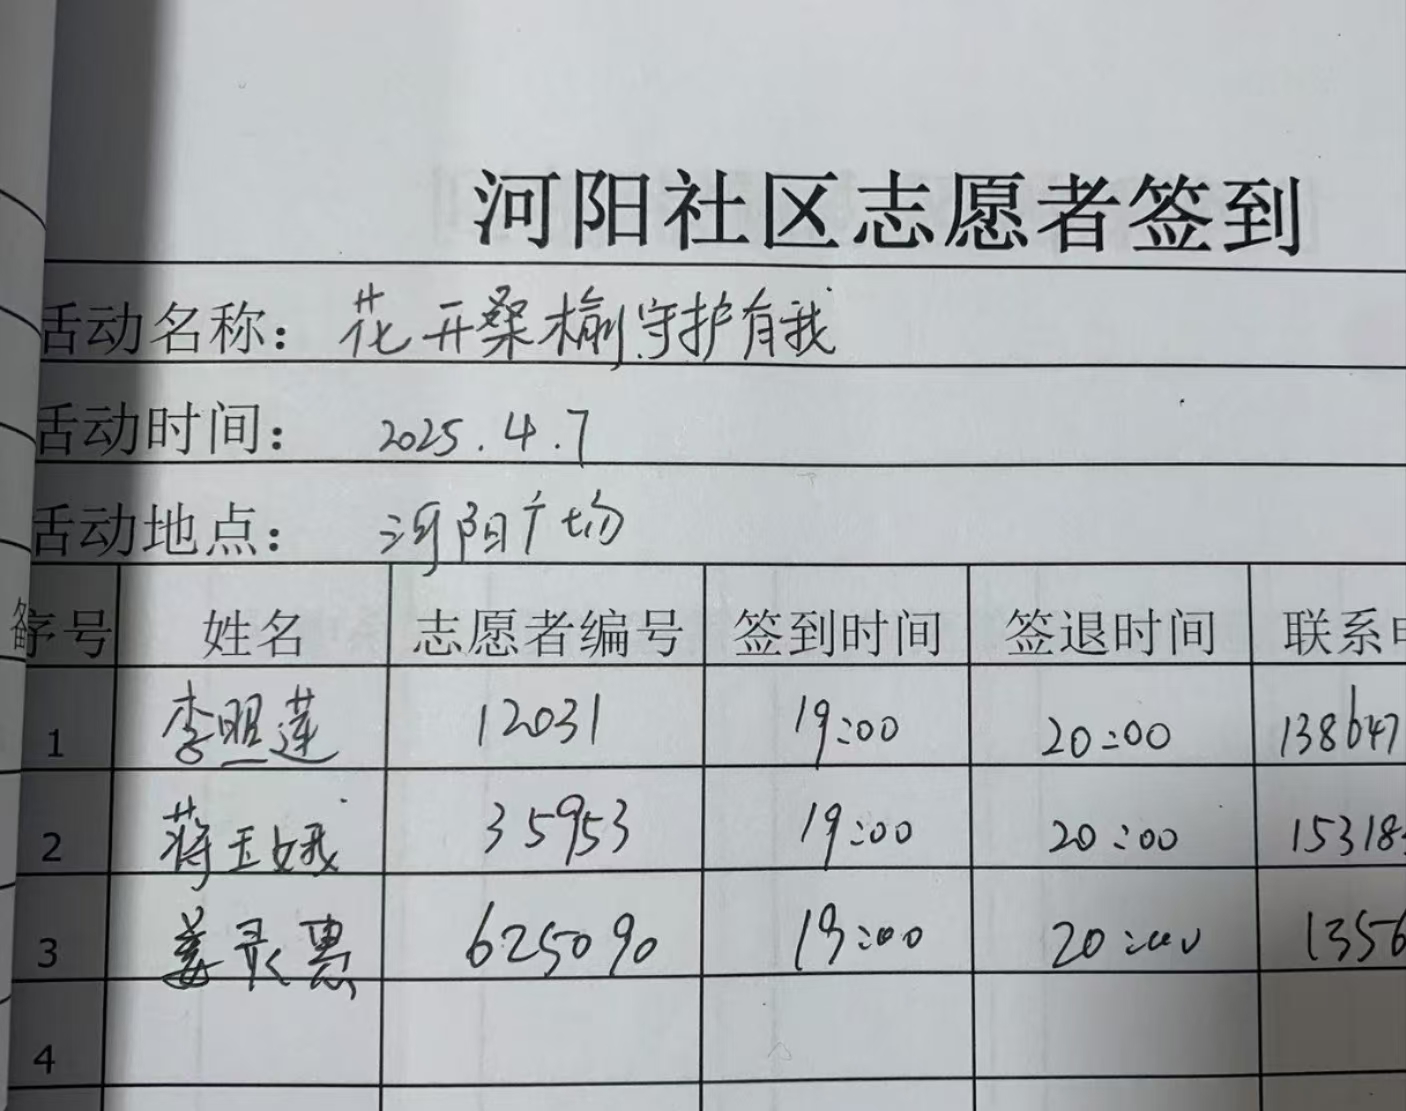 河阳社区志愿者签到
活动名称：花开桑榆守护有我
活动时间：2025.4.7
活动地点：河阳广场
序号 姓名 志愿者编号 签到时间 签退时间 联系
1 李照莲 12031 19:00 20:00 138647
2 蒋玉娥 35953 19:00 20:00 15318
3 姜灵惠 625090 19:00 20:00 1356
4